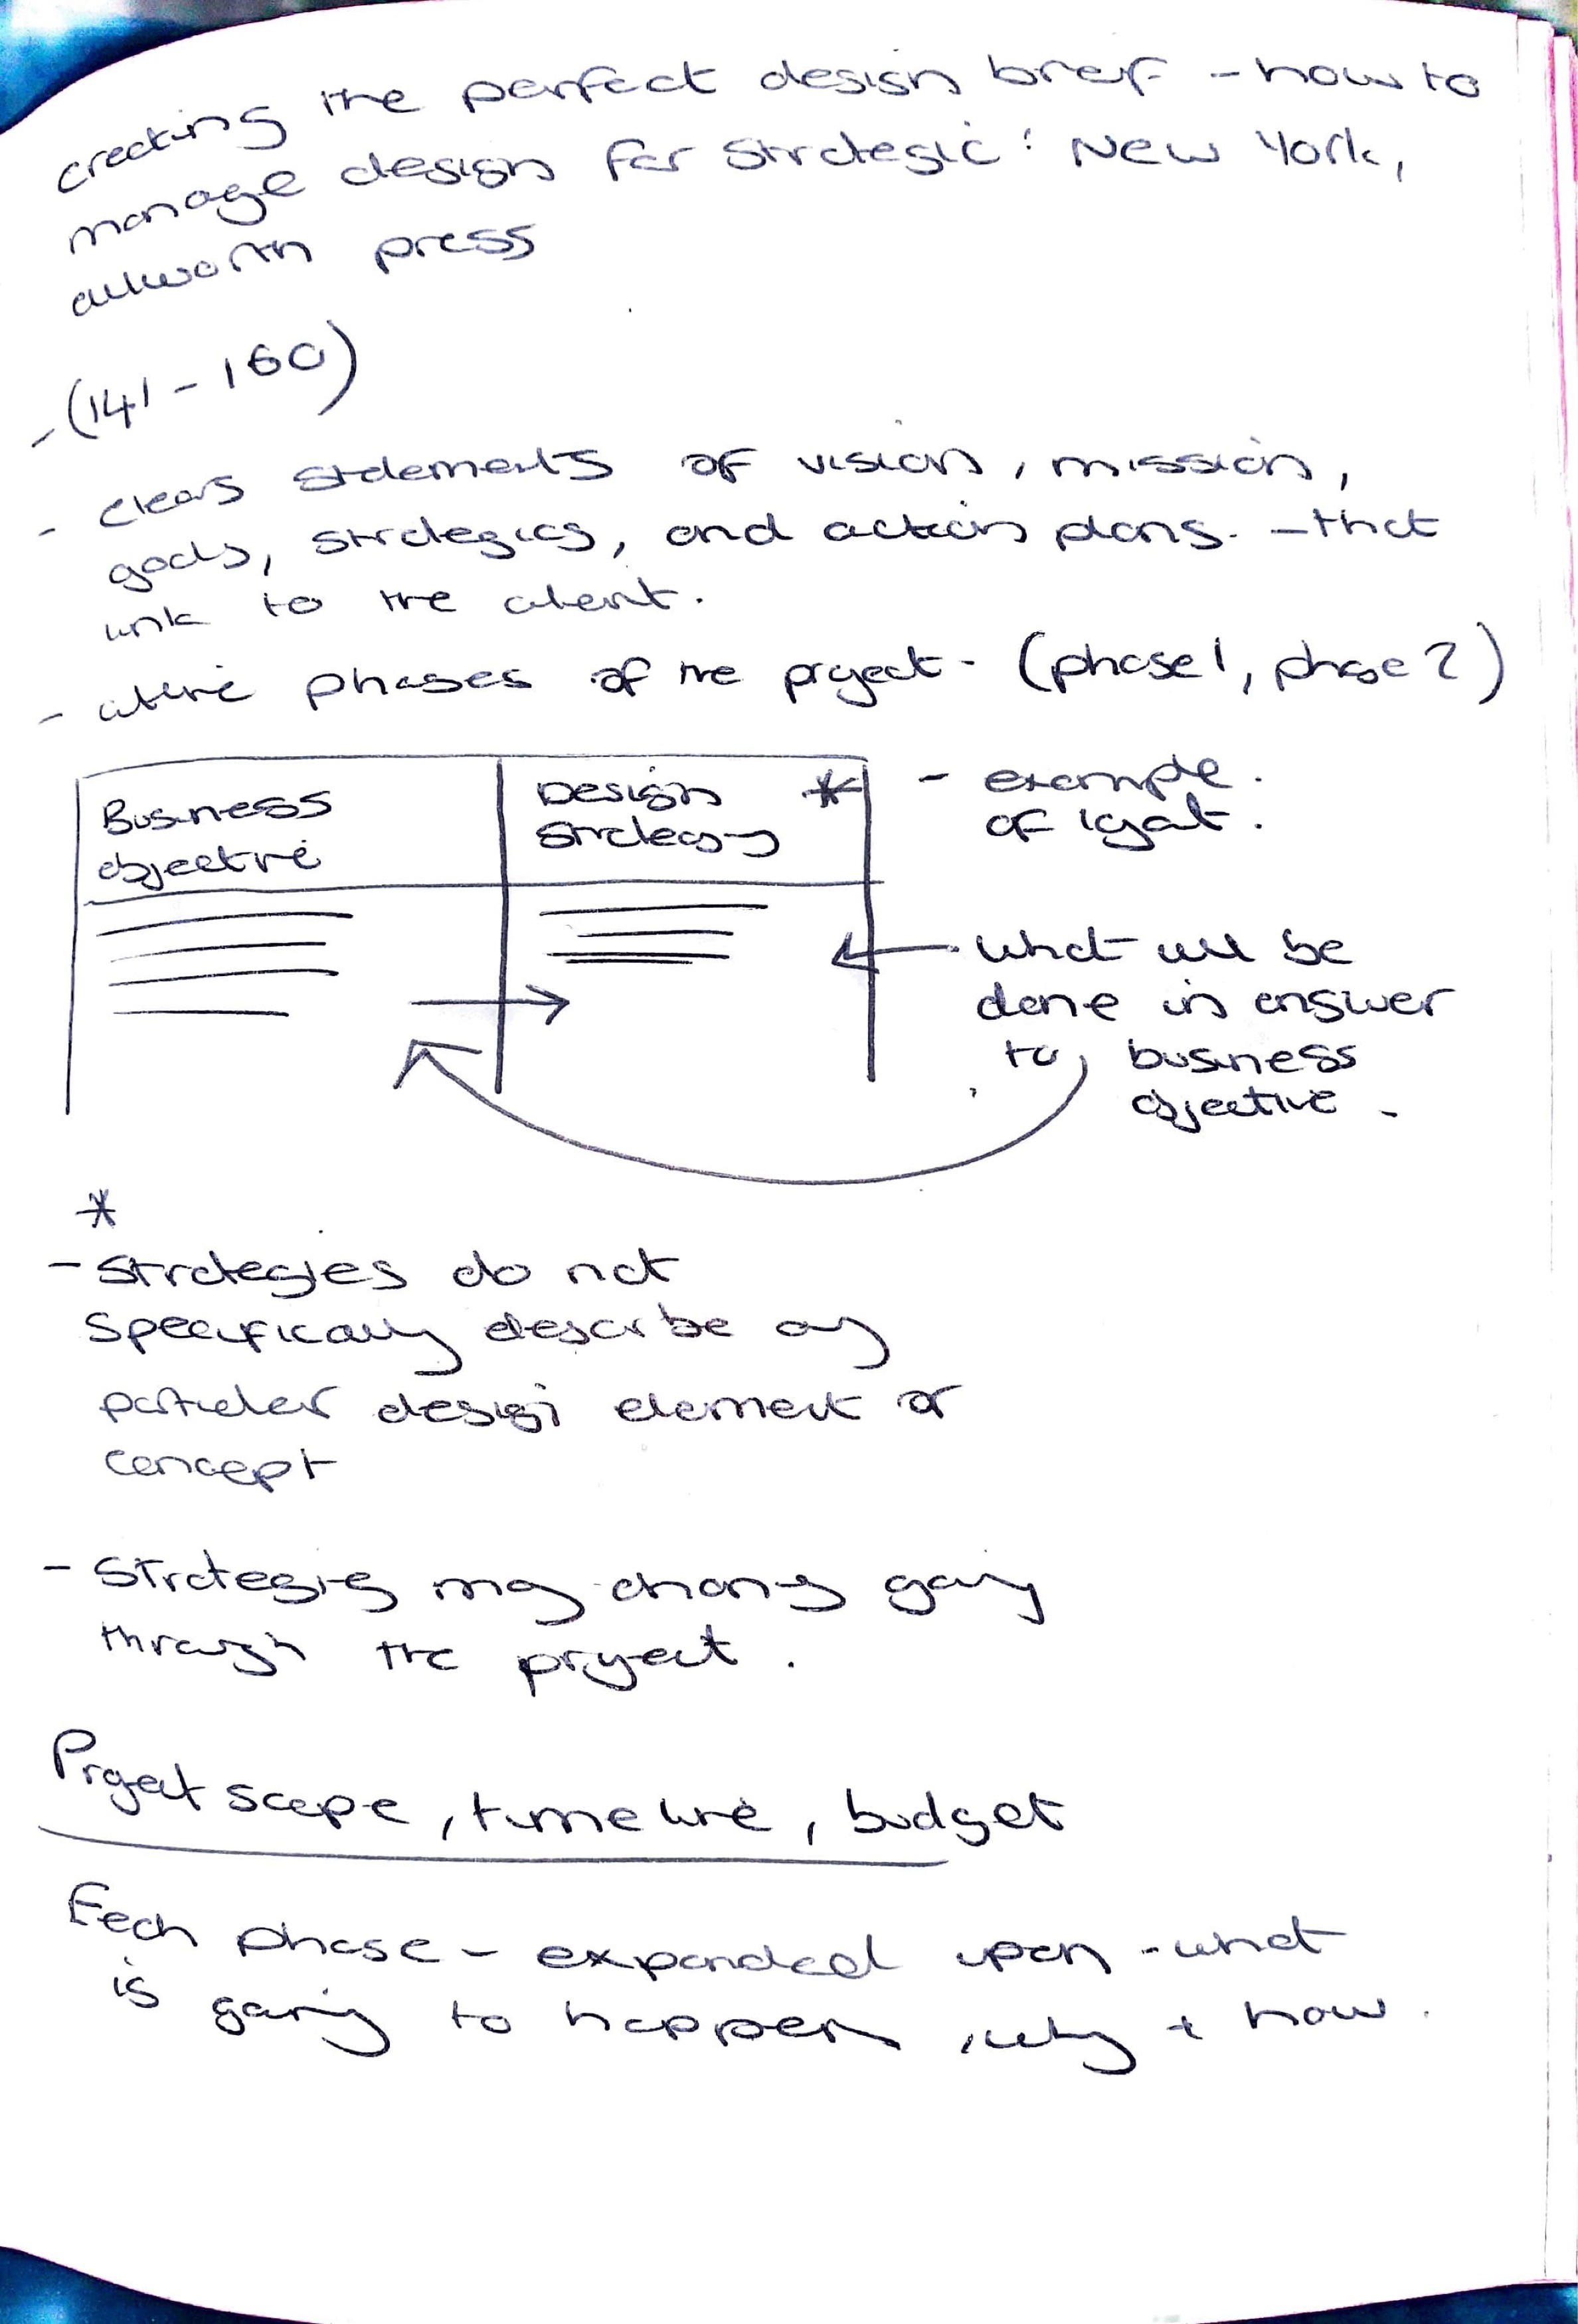 creating the perfect design brief - how to
manage design for strategic : New York,
allworth press
- (141 - 160)
- clear statements of vision, mission,
goals, strategies, and action plans. - that
link to the client.
- outline phases of the project - (phase 1, phase 2)
Business
objective
Design *
Strategy
- example.
of layout.
what will be
done in answer
to business
objective.
*
- Strategies do not
specifically describe any
particular design element or
concept
- Strategies may change going
through the project.
Project scope, timeline, budget
Each phase - expanded upon - what
is going to happen, why + how.